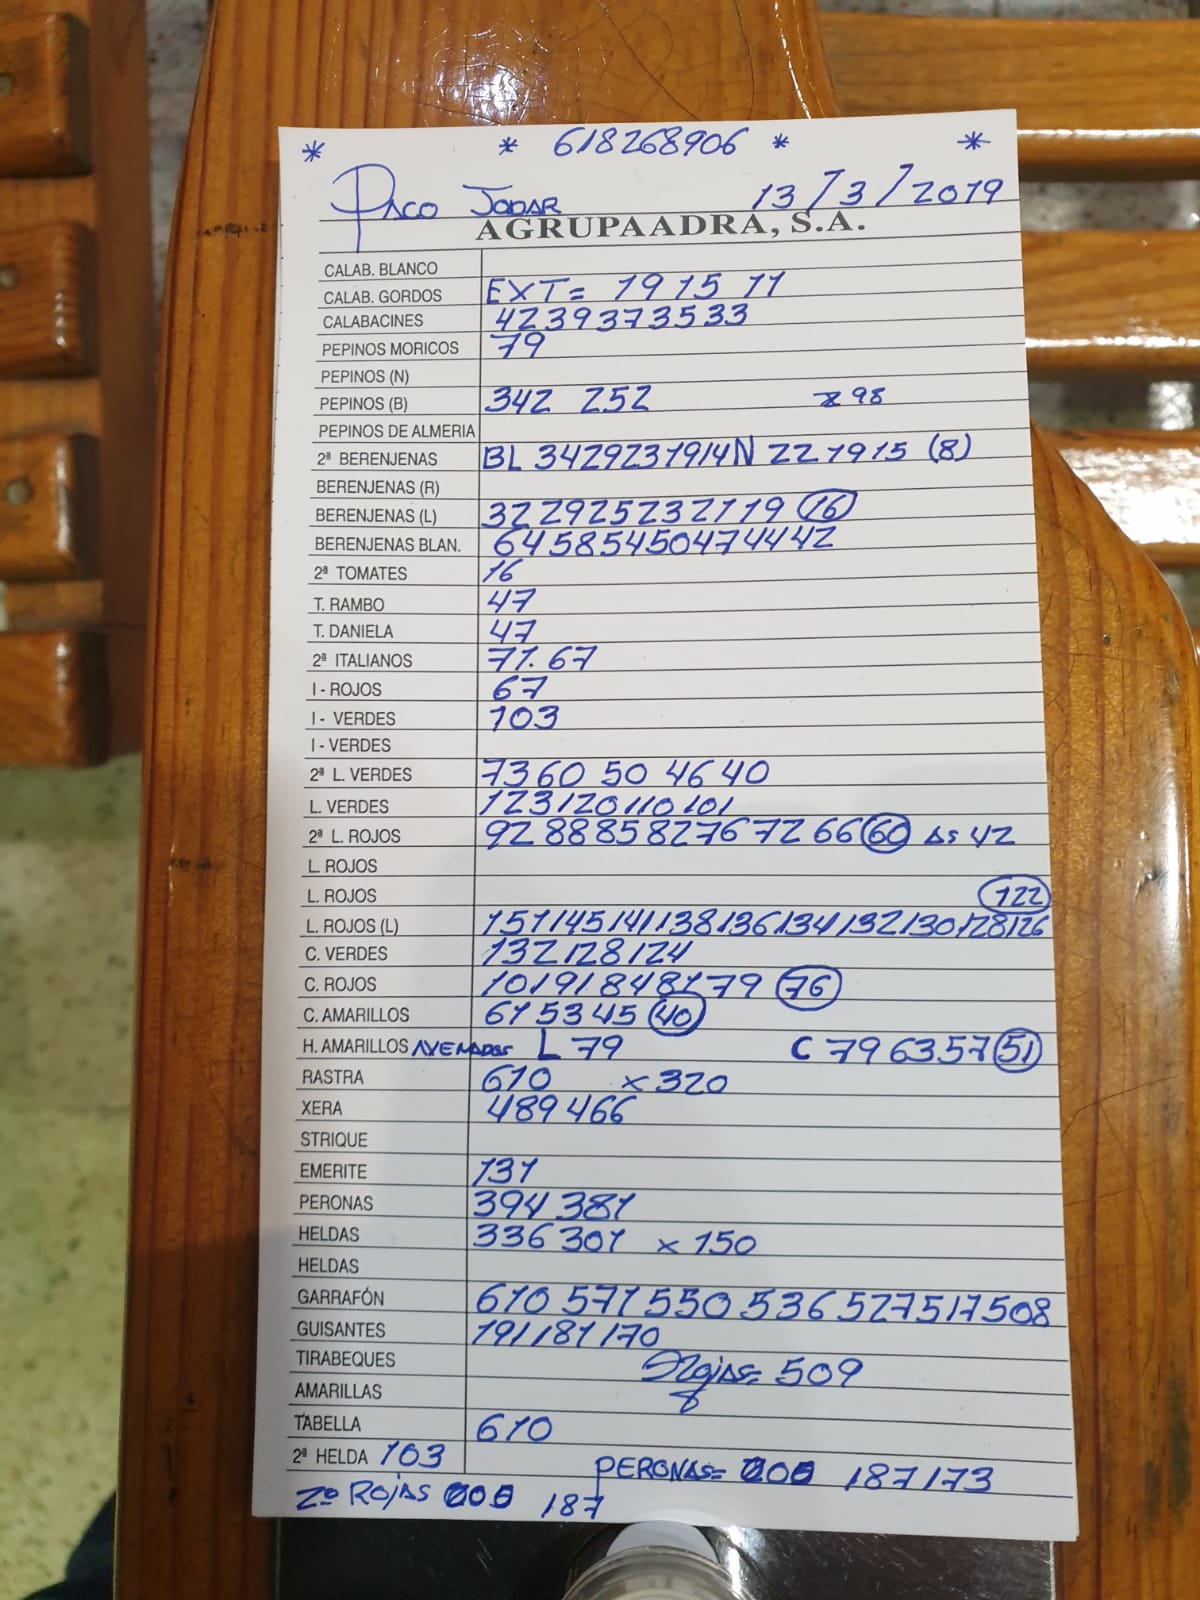 * * 618268906 * *
PACO JODAR 13/3/2019
AGRUPAADRA, S.A.
CALAB. BLANCO
CALAB. GORDOS EXT= 19 15 11
CALABACINES 42 39 37 35 33
PEPINOS MORICOS 79
PEPINOS (N)
PEPINOS (B) 342 252 x 98
PEPINOS DE ALMERIA
2ª BERENJENAS BL 34 29 23 19 14 N 22 19 15 (8)
BERENJENAS (R)
BERENJENAS (L) 32 29 25 23 21 19 16
BERENJENAS BLAN. 64 58 54 50 47 44 42
2ª TOMATES 16
T. RAMBO 47
T. DANIELA 47
2ª ITALIANOS 71. 67
I - ROJOS 67
I - VERDES 103
I - VERDES
2ª L. VERDES 73 60 50 46 40
L. VERDES 123 120 110 101
2ª L. ROJOS 92 88 85 82 76 72 66 60 AS 42
L. ROJOS
L. ROJOS 122
L. ROJOS (L) 151 145 141 138 136 134 132 130 128 126
C. VERDES 132 128 124
C. ROJOS 101 91 84 81 79 76
C. AMARILLOS 61 53 45 40
H. AMARILLOS L 79 C 79 63 57 51
RASTRA 610 x 320
XERA 489 466
STRIQUE
EMERITE 131
PERONAS 394 381
HELDAS 336 301 x 150
HELDAS
GARRAFÓN 610 571 550 536 527 517 508
GUISANTES 191 181 170
TIRABEQUES Rojas= 509
AMARILLAS
TABELLA 610
2ª HELDA 103 PERONAS= 187 173
2º ROJAS 187